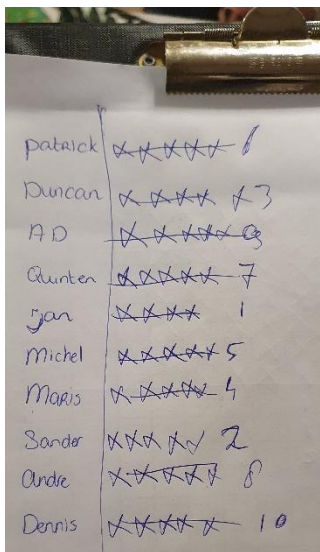 Patrick xxxxx 6
Duncan xxxx x 3
AD xxxxx 9
Quinten xxxxx 7
Jan xxxx 1
Michel xxxxx 5
Maris x xxxx 4
Sander xxxxx 2
Andre xxxxx 8
Dennis xxxxx 10